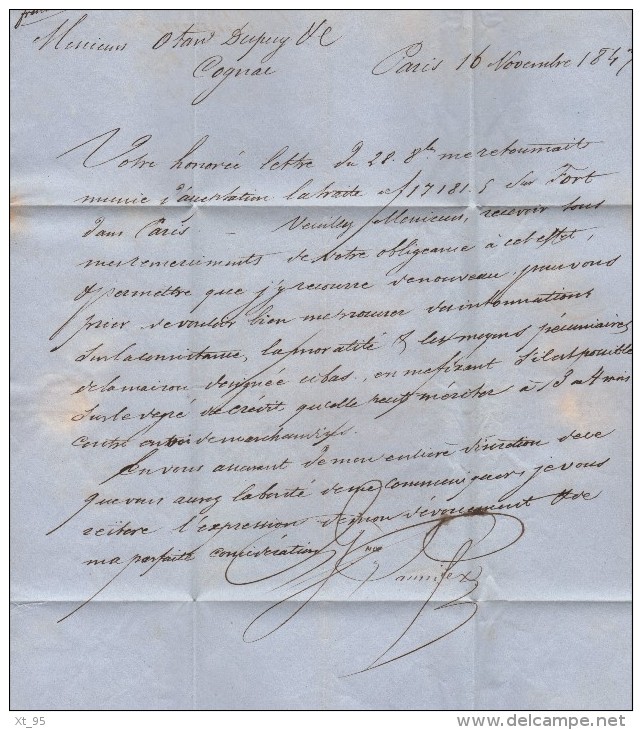 Messieurs Otard Dupuy & Ce
Cognac Paris 16 Novembre 1847
Votre honorée lettre du 28. 8bre me retournait
munie d'acceptation la traite de f 17181.5 sur Fort
dans Paris. — Veuillez Messieurs, recevoir tous
mes remerciments de votre obligeance à cet effet,
& permettre que j'y recourre de nouveau, pour vous
prier de vouloir bien me procurer des informations
sur la consistance, la moralité & les moyens pécuniaires
de la maison désignée ci bas, en me fixant s'il est possible
sur le degré de crédit qu'elle peut mériter à 3 a 4 mois
contre envoi de marchandises.
En vous assurant de mon entière discrétion de ce
que vous aurez la bonté de me communiquer, je vous
réitère l'expression de mon dévouement & de
ma parfaite considération
Xt_95
delcampe.net